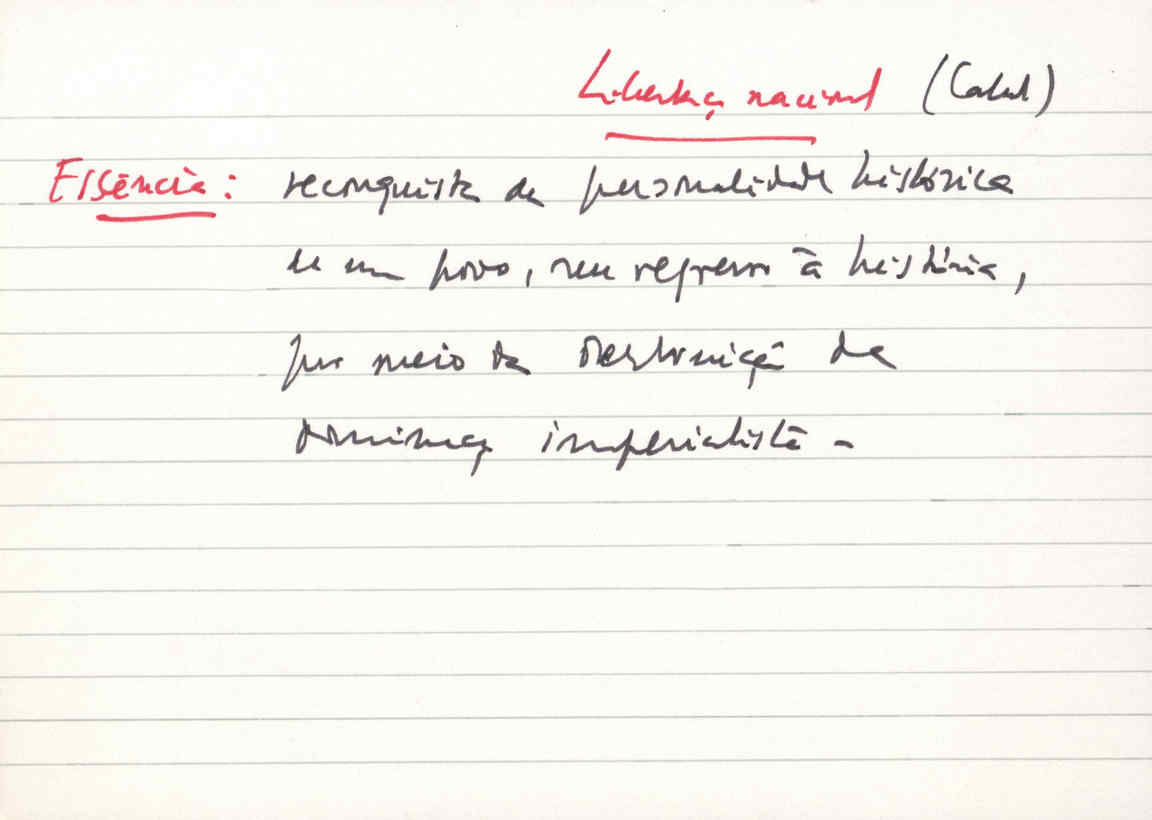 Libertação nacional (Cabral)
Essência: reconquista da personalidade histórica
de um povo, seu regresso à história,
por meio da destruição da
dominação imperialista -